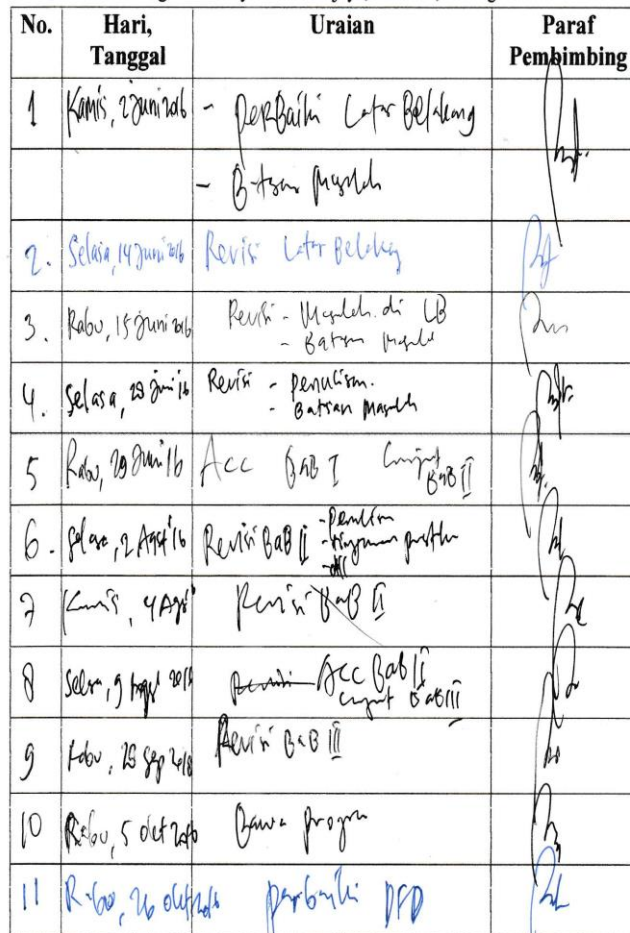 No. Hari, Tanggal Uraian Paraf Pembimbing
1 Kamis, 2 Juni 2016 - Perbaiki Latar Belakang
- Batasan Masalah
2. Selasa, 14 Juni 2016 Revisi Latar Belakang
3. Rabu, 15 Juni 2016 Revisi - Masalah di LB
- Batasan Masalah
4. Selasa, 28 Juni 16 Revisi - Penulisan.
- Batasan Masalah
5 Rabu, 29 Juni 16 Acc BAB I Lanjut BAB II
6. Selasa, 2 Agst 16 Revisi BAB II - Penulisan
- Tinjauan pustaka
- dll
7 Kamis, 4 Agt Revisi BAB II
8 Selasa, 9 2016 Revisi Acc Bab II
Lanjut BAB III
9 Rabu, 28 Sep 2016 Revisi BAB III
10 Rabu, 5 Okt 2016 Bawa program
11 Rabu, 26 Okt 2016 perbaiki DFD